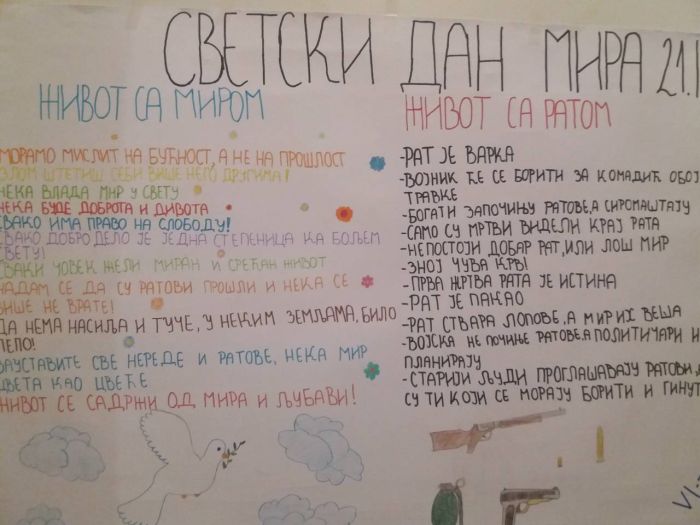 СВЕТСКИ ДАН МИРА 21.
ЖИВОТ СА МИРОМ
МОРАМО МИСЛИТ НА БУЋНОСТ, А НЕ НА ПРОШЛОСТ
ЗЛОМ ШТЕТИШ СЕБИ ВИШЕ НЕГО ДРУГИМА!
НЕКА ВЛАДА МИР У СВЕТУ
НЕКА БУДЕ ДОБРОТА И ДИВОТА
СВАКО ИМА ПРАВО НА СЛОБОДУ!
СВАКО ДОБРО ДЕЛО ЈЕ ЈЕДНА СТЕПЕНИЦА КА БОЉЕМ
СВЕТУ!
СВАКИ ЧОВЕК ЖЕЛИ МИРАН И СРЕЋАН ЖИВОТ
НАДАМ СЕ ДА СУ РАТОВИ ПРОШЛИ И НЕКА СЕ
ВИШЕ НЕ ВРАТЕ!
ДА НЕМА НАСИЉА И ТУЧЕ, У НЕКИМ ЗЕМЉАМА, БИЛО
ЛЕПО!
ЗАУСТАВИТЕ СВЕ НЕРЕДЕ И РАТОВЕ, НЕКА МИР
ЦВЕТА КАО ЦВЕЋЕ
ЖИВОТ СЕ САДРЖИ ОД МИРА И ЉУБАВИ!
ЖИВОТ СА РАТОМ
-РАТ ЈЕ ВАРКА
-ВОЈНИК ЋЕ СЕ БОРИТИ ЗА КОМАДИЋ ОБОЈ
ТРАВКЕ
-БОГАТИ ЗАПОЧИЊУ РАТОВЕ, А СИРОМАШТАЈУ
-САМО СУ МРТВИ ВИДЕЛИ КРАЈ РАТА
-НЕПОСТОЈИ ДОБАР РАТ, ИЛИ ЛОШ МИР
-ЗНОЈ ЧУВА КРВ!
-ПРВА ЖРТВА РАТА ЈЕ ИСТИНА
-РАТ ЈЕ ПАКАО
-РАТ СТВАРА ЛОПОВЕ, А МИР ИХ ВЕША
-ВОЈСКА НЕ ПОЧИЊЕ РАТОВЕ, А ПОЛИТИЧАРИ
ПЛАНИРАЈУ
-СТАРИЈИ ЉУДИ ПРОГЛАШАВАЈУ РАТОВИ,
СУ ТИ КОЈИ СЕ МОРАЈУ БОРИТИ И ГИНУТ